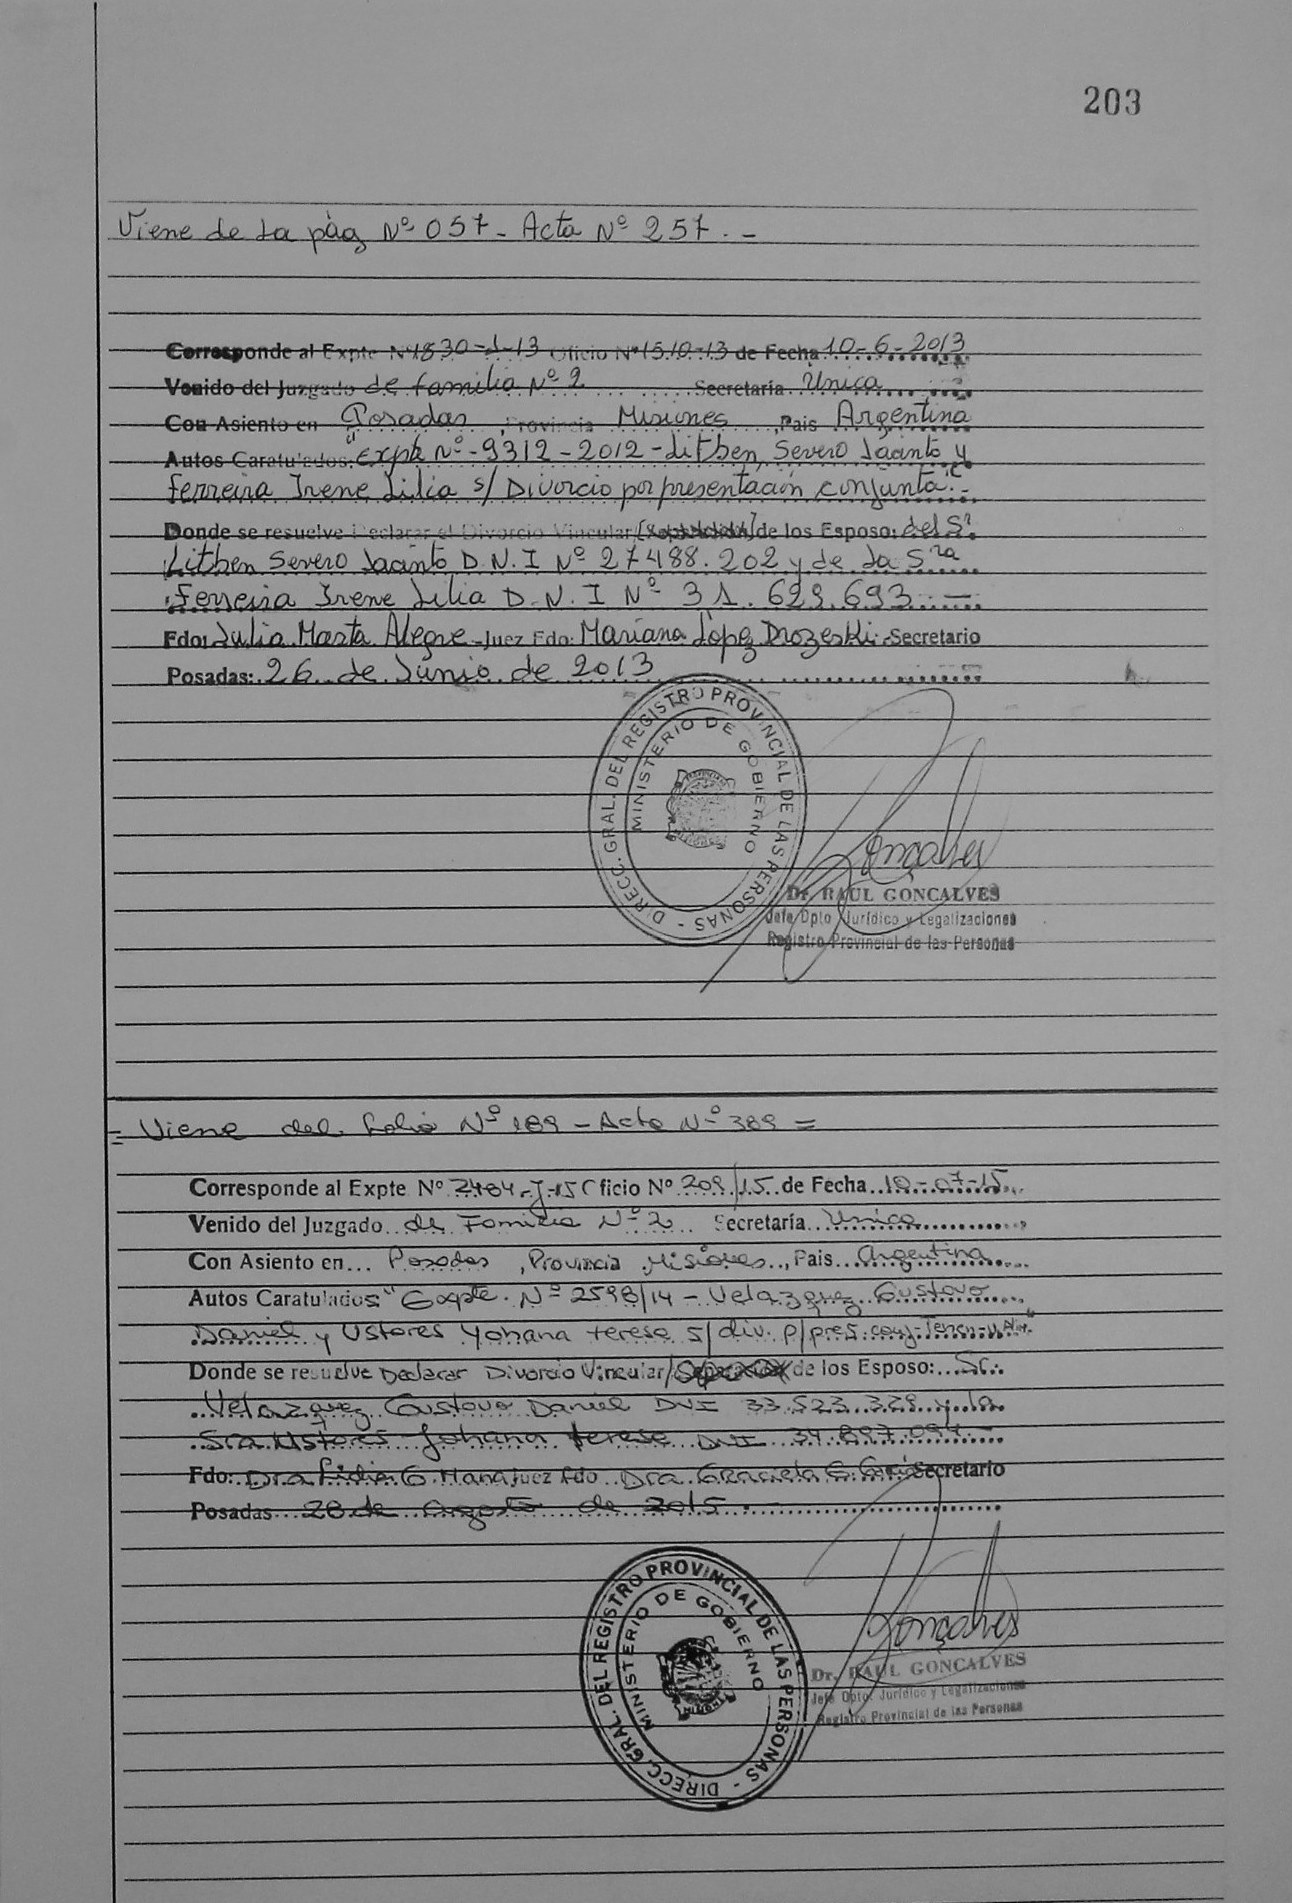 203
Viene de La pàg Nº 057 - Acta Nº 257. -
Corresponde al Expte Nº 1830-J-13 Oficio Nº 1510-13 de Fecha 10-6-2013
Venido del Juzgado de familia Nº 2 Secretaría Única
Con Asiento en Posadas, Provincia Misiones, Pais Argentina
Autos Caratulados: "Expte Nº - 9312-2012 - Lithen, Severo Jacinto y
Ferreira Irene Lilia s/ Divorcio por presentación conjunta". -
Donde se resuelve Declarar el Divorcio Vincular/ de los Esposo: del Sr.
Lithen Severo Jacinto D.N.I Nº 27488.202 y de La Sra
Ferreira Irene Lilia D.N.I Nº 31.629.693. -
Fdo: Julia Marta Alegre Juez Fdo: Mariana López Drozeski Secretario
Posadas: 26 de Junio de 2013
DIRECC. GRAL. DEL REGISTRO PROVINCIAL DE LAS PERSONAS -
MINISTERIO DE GOBIERNO
Gonçalves
Dr. RAUL GONCALVES
Jefe Dpto Jurídico y Legalizaciones
Registro Provincial de las Personas
= Viene del folio Nº 189 - Acta Nº 389 =
Corresponde al Expte Nº 2484-J-15 Oficio Nº 209/15 de Fecha 10-07-15
Venido del Juzgado de Familia Nº 2 Secretaría Unica
Con Asiento en Posadas, Provincia Misiones, Pais Argentina
Autos Caratulados "Expte. Nº 2598/14 - Velazquez Gustavo
Daniel y Ustores Yohana terese s/div. p/pres. conj-Tenen-y Alim"
Donde se resuelve Declarar Divorcio Vincular/ de los Esposo: Sr.
Velazquez Gustavo Daniel DNI 33.523.329 y la
Sra Ustores Johana terese DNI 34.897.094 -
Fdo: Dra Lidia G. Juez Fdo Dra. Graciela Secretario
Posadas 28 de agosto de 2015. -
DIRECC. GRAL. DEL REGISTRO PROVINCIAL DE LAS PERSONAS -
MINISTERIO DE GOBIERNO
Gonçalves
Dr. RAUL GONCALVES
Jefe Dpto. Jurídico y Legalizaciones
Registro Provincial de las Personas